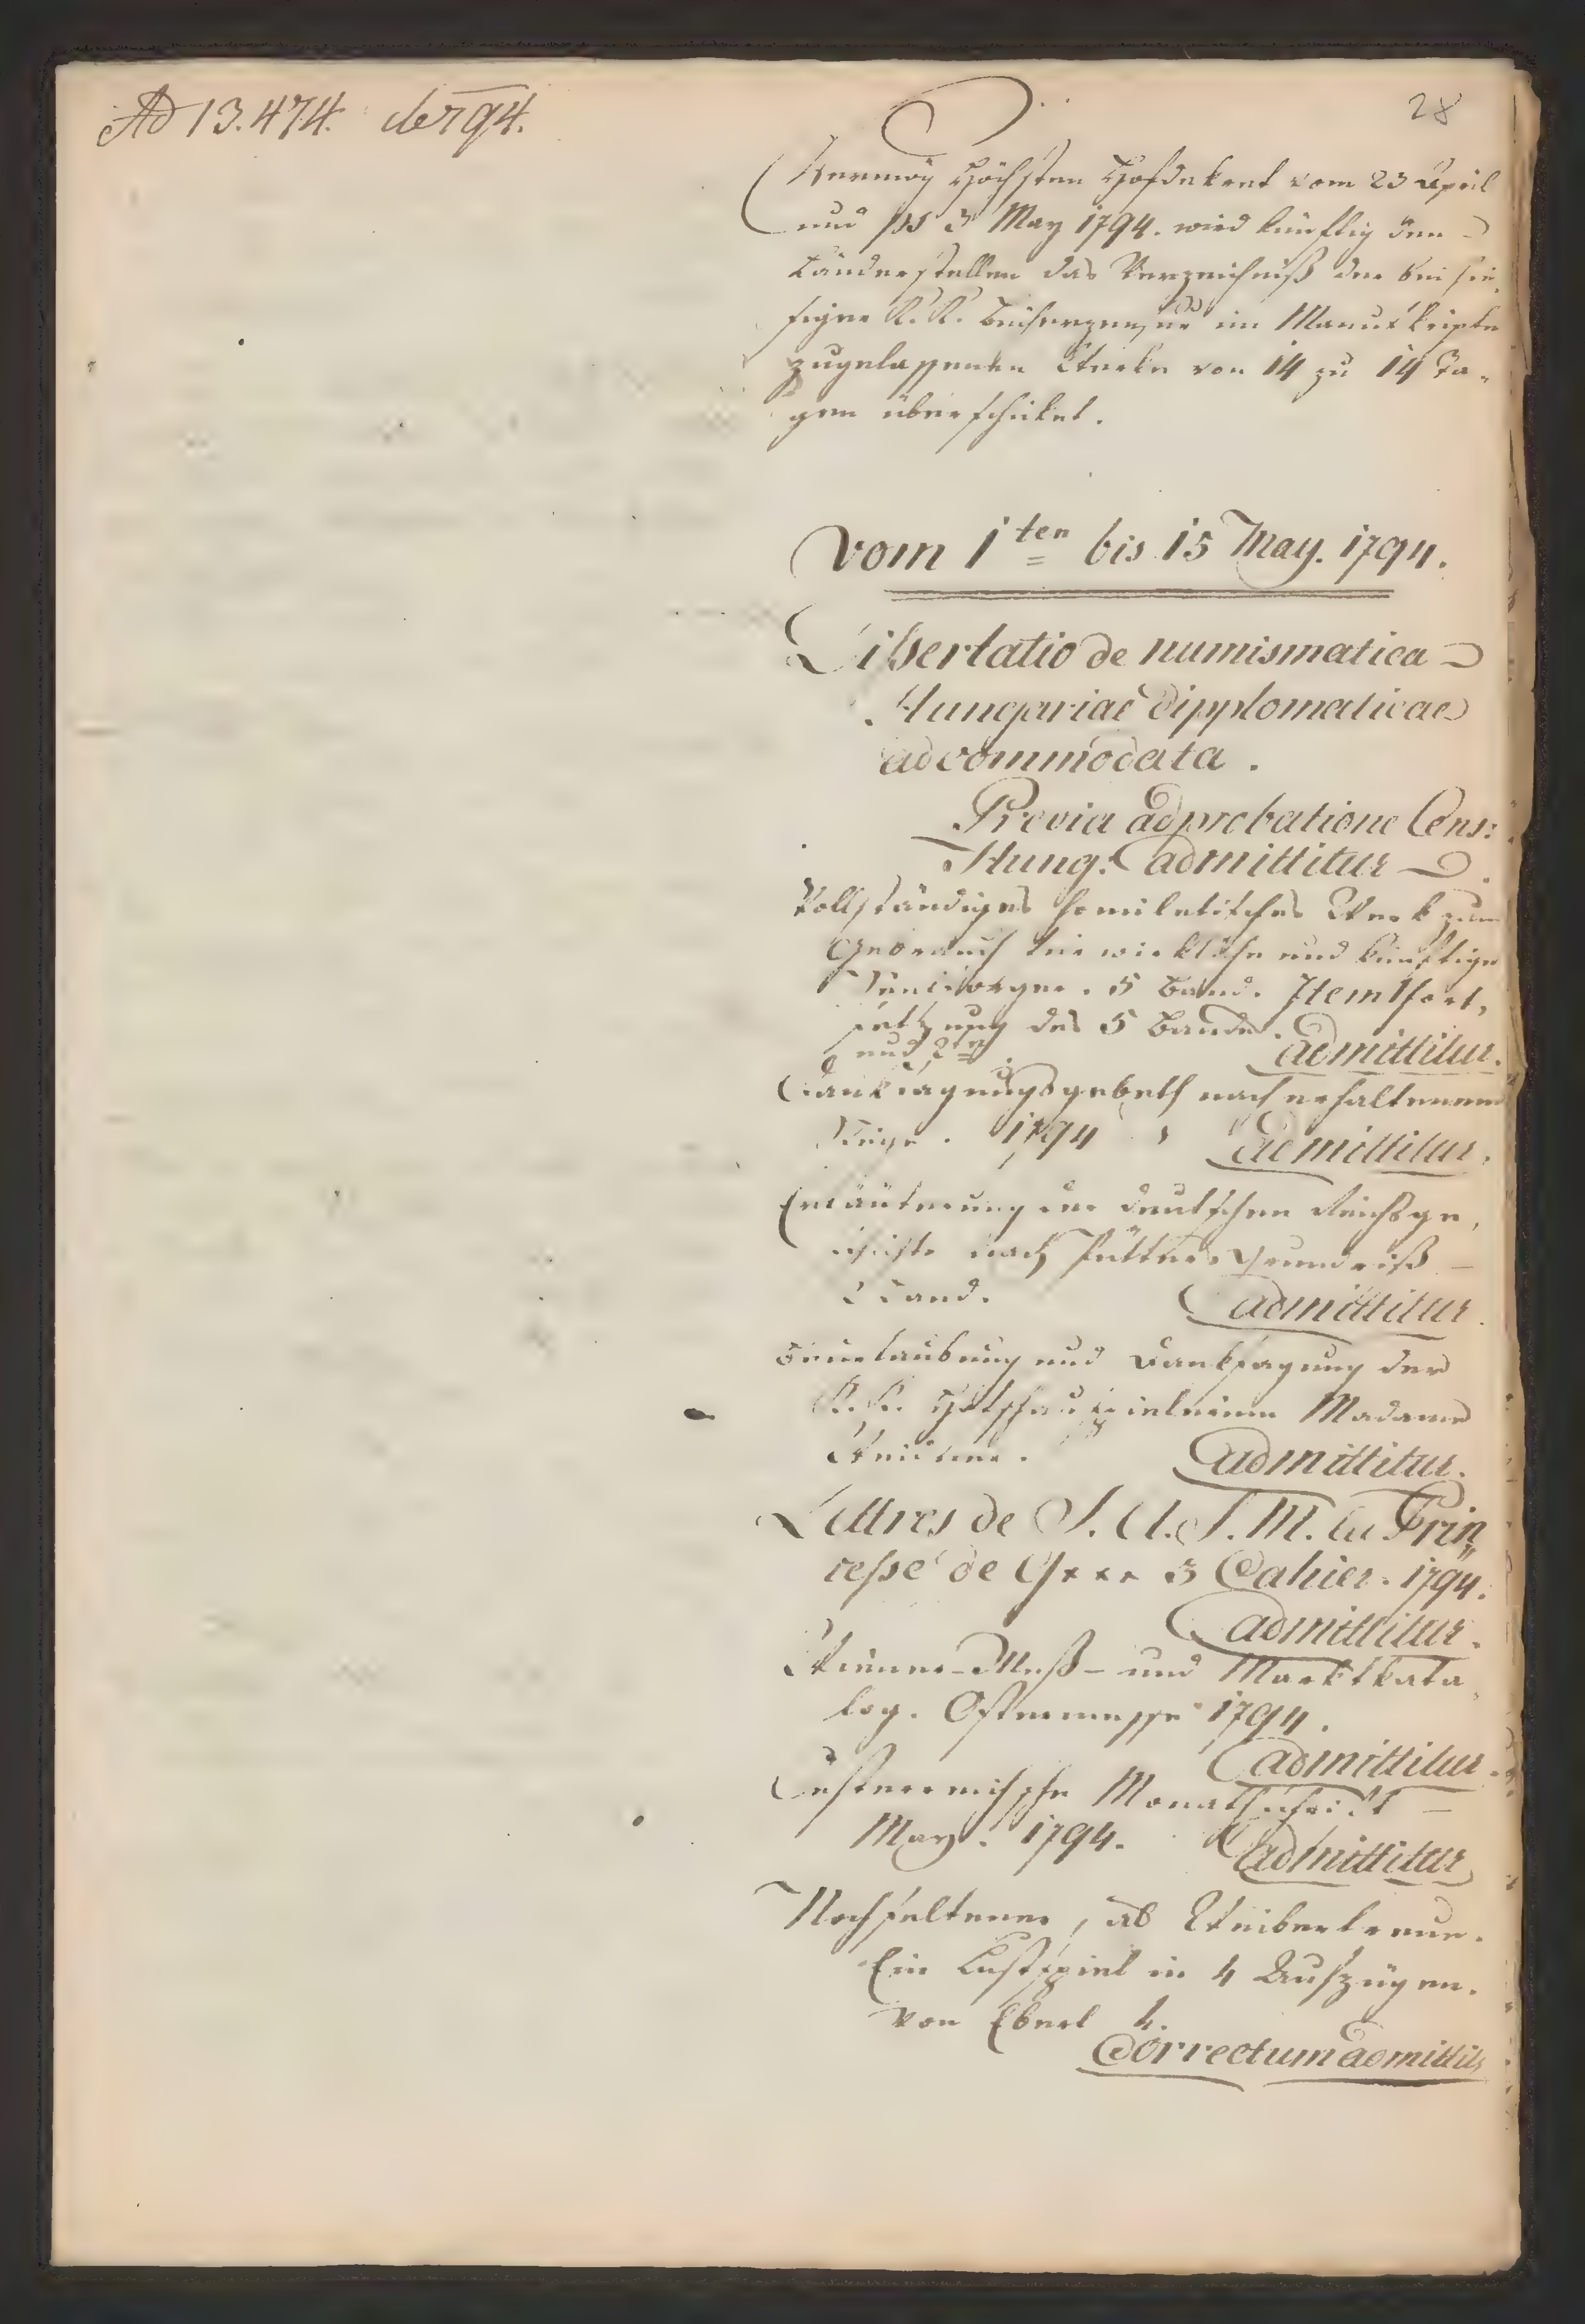 Ad 13.474. de 794.
28
Vermög höchsten Hofdekret vom 23 April
und 3 May 1794. wird künftig den
Länderstellen das Verzeichniß der bei hie,
siger K. K. Bücherzensur im Manuskripte
zugelassenen Werke von 14 zu 14 Ta-
gen überschicket.
Vom 1ten bis 15 May. 1794.
Dissertatio de numismatica
Hungariae dipplomaticae
adcommodata.
Previa adprobatione Cens:
Hung: admittitur
Vollständiges homiletisches Werk zum
Gebrauch für wirkliche und künftige
Seelsorger. 5 Band. Item 1 Fort,
setzung des 5 Bandes.
und 2te admittitur.
Danksagungsgebeth nach erhaltenem
Siege. 1794. admittitur.
Erläuterung der deutschen Reichsge,
schichte nach Pütters Grundriß
2 Band. admittitur.
Beurlaubung und Danksagung der
K. K. Hofschauspielerinn Madame
Weidner. admittitur.
Lettres de S. A. S. M. la Prin,,
cesse de G*** 3 Cahier. 1794.
admittitur.
Wiener-Meß- und Marktkata,
log. Ostermesse 1794.
admittitur.
Oesterreichische Monathschrift
May. 1794. admittitur
Noch seltener, als Weibertreue.
Ein Lustspiel in 4 Aufzügen.
von Eberl
Correctum admittit,